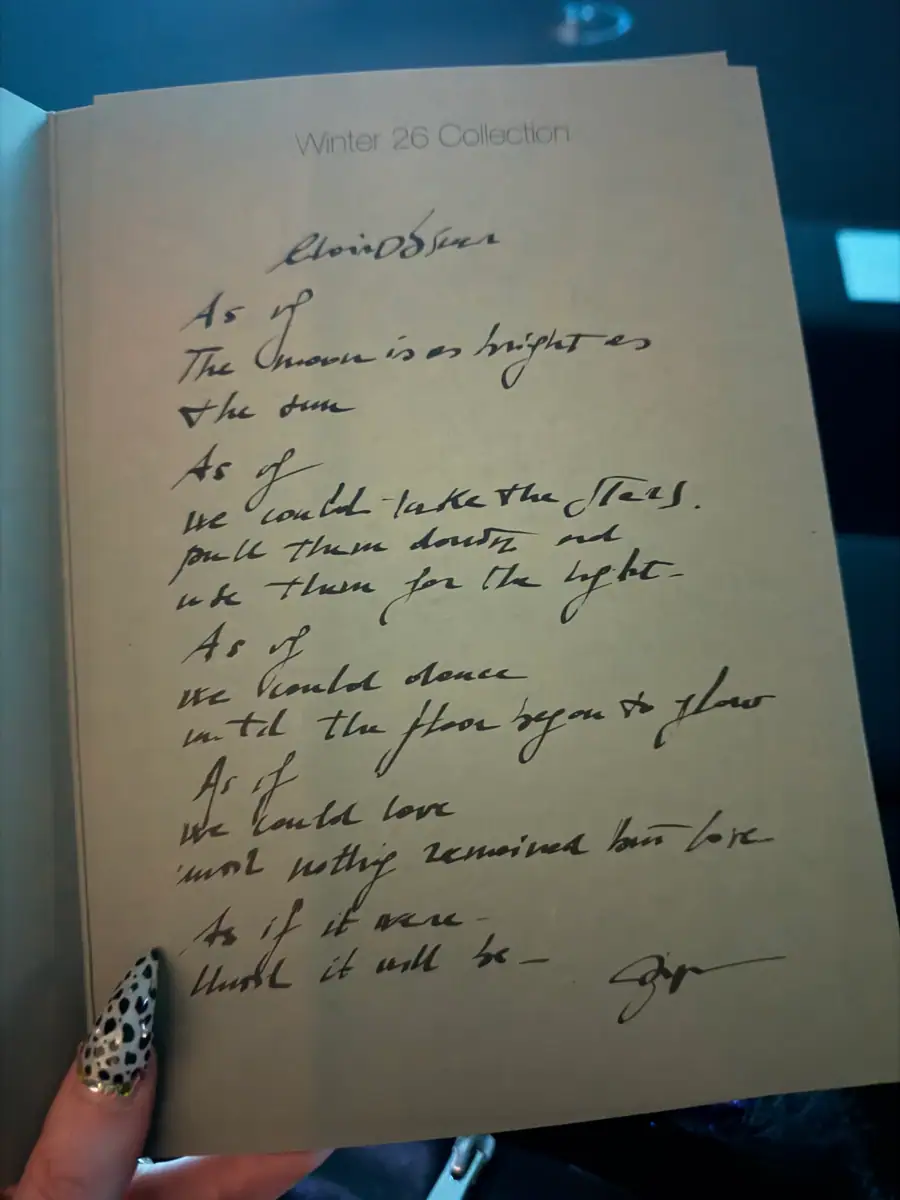 Winter 26 Collection
ClairObscur
As if
The moon is as bright as
the sun
As if
we could take the stars.
pull them down and
use them for the light-
As if
we could dance
until the floor began to glow
As if
we could love
until nothing remained but love
As if it were -
Until it will be -